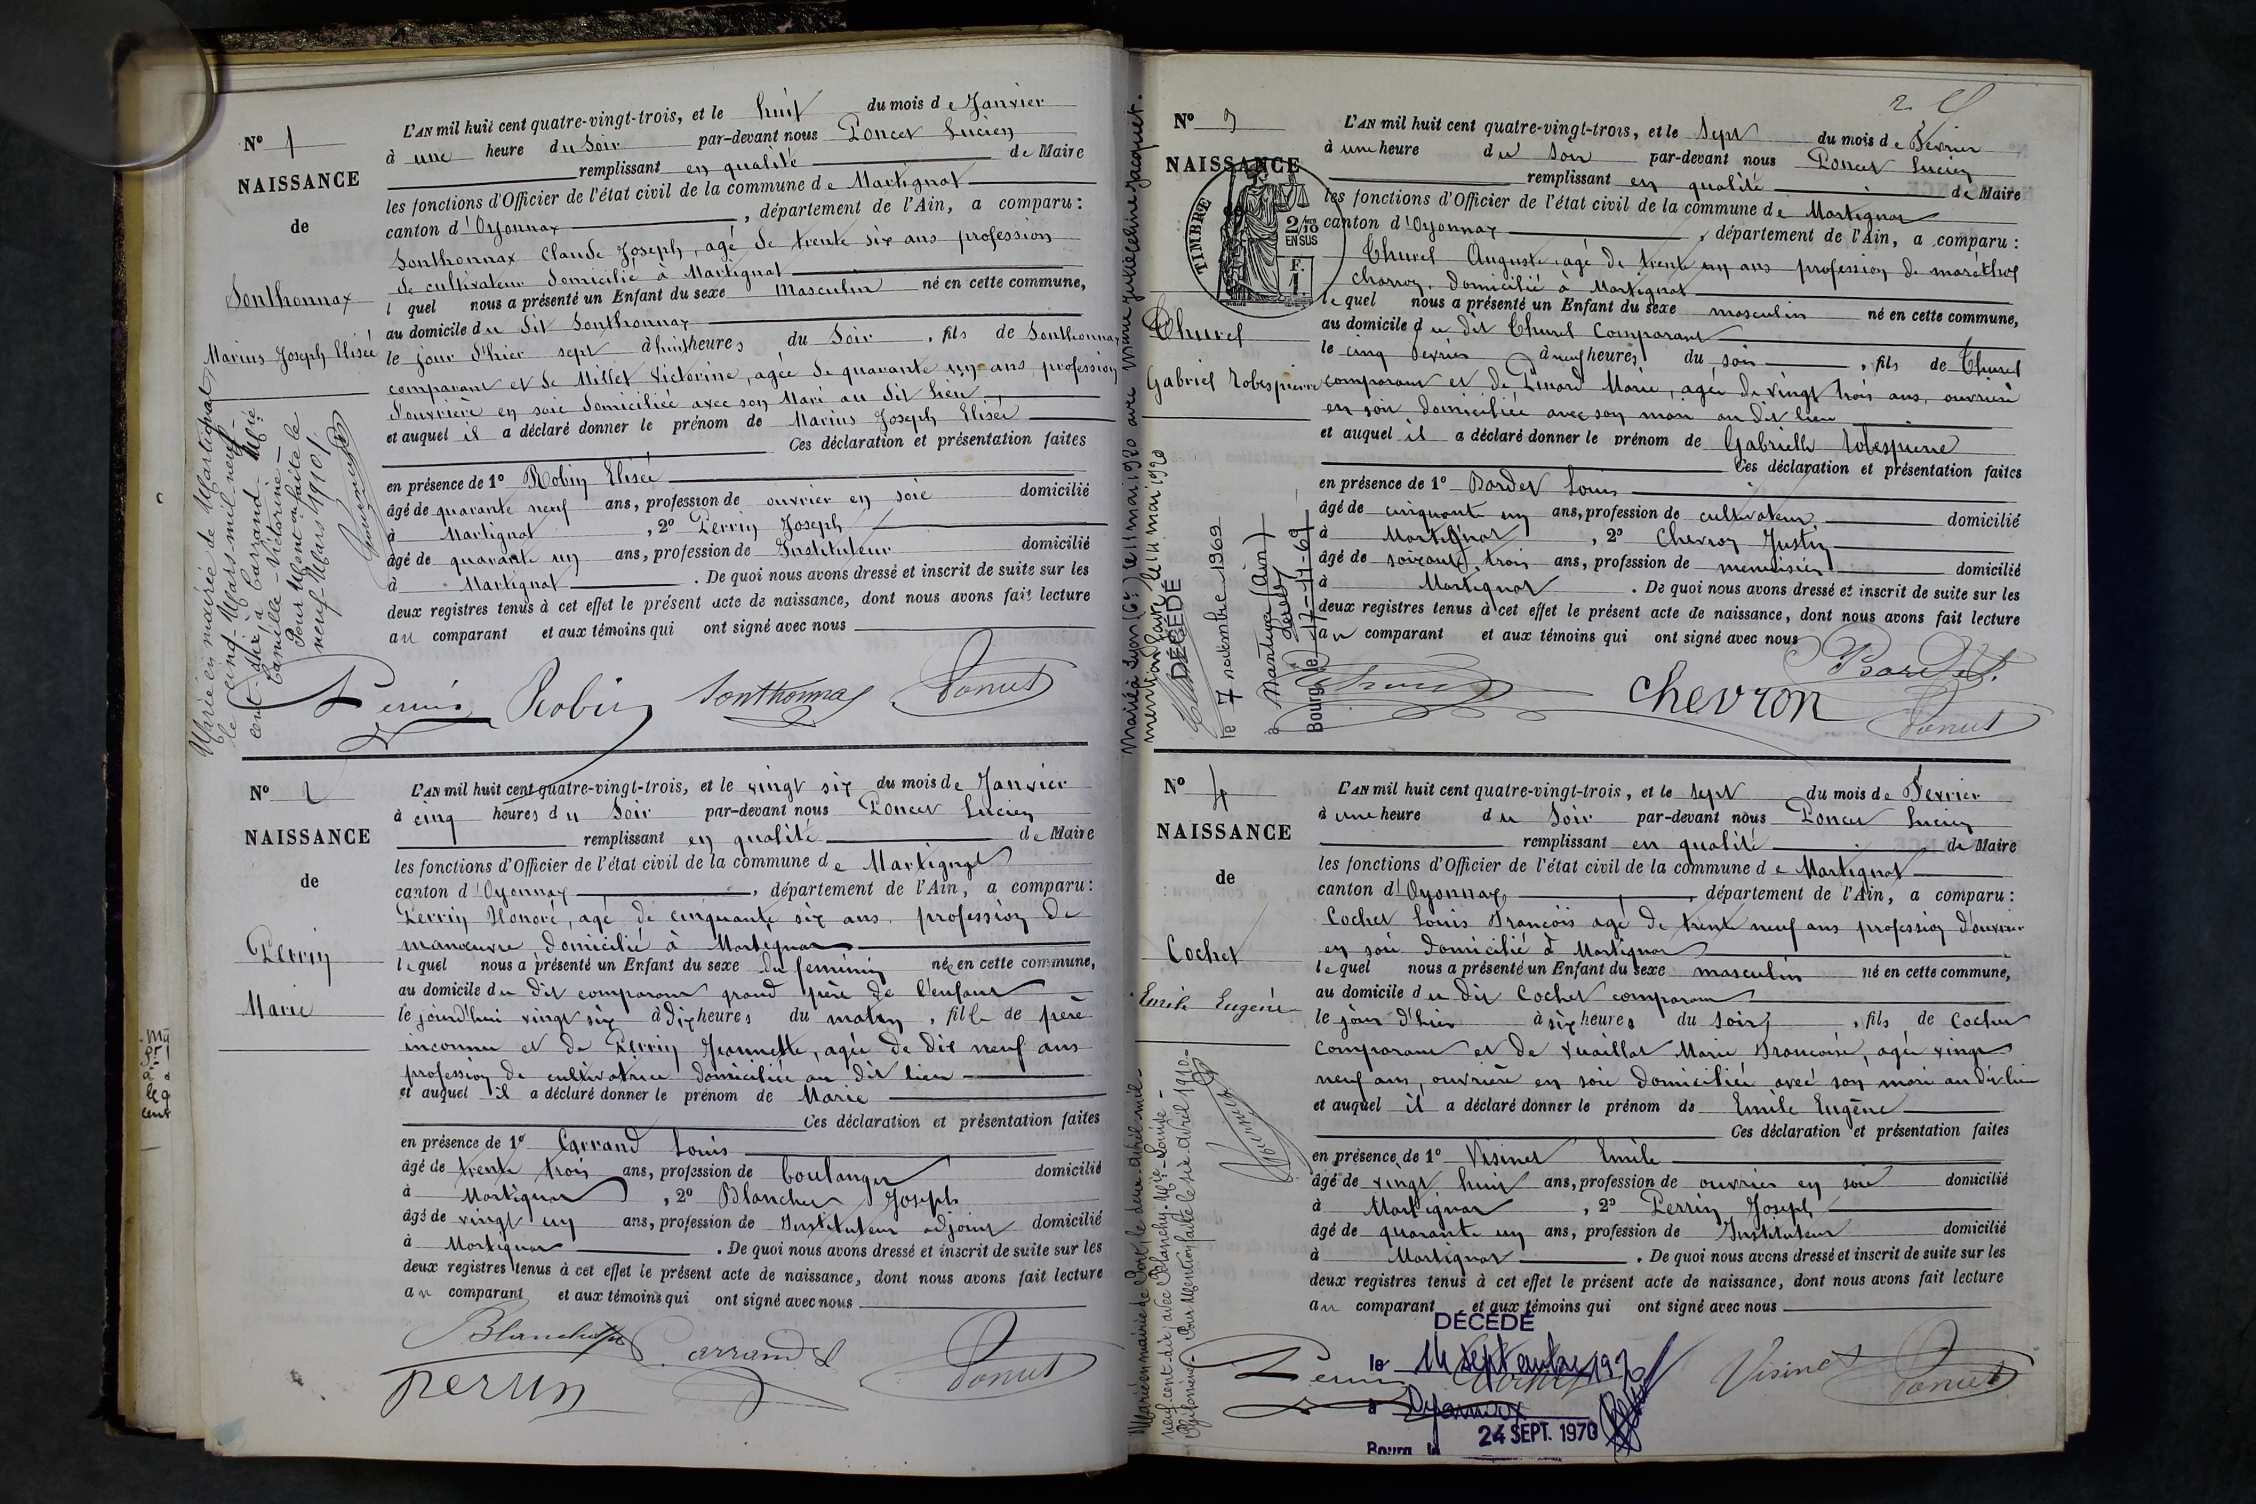 Nº 1
NAISSANCE
de
Sonthonnax
Marius Joseph Elisée
Marié en mairie de Martignat,
le cinq Mars mil neuf
cent dix, à Carrand Mie
Camille-Victorine
Pour Mention faite le
neuf Mars 1910
L'AN mil huit cent quatre-vingt-trois, et le huit du mois de Janvier
à une heure du Soir par-devant nous Poncet Lucien
remplissant en qualité de Maire
les fonctions d'Officier de l'état civil de la commune de Martignat
canton d'Oyonnax, département de l'Ain, a comparu:
Sonthonnax Claude Joseph, agé de trente six ans profession
de cultivateur domicilié à Martignat
l quel nous a présenté un Enfant du sexe Masculin né en cette commune,
au domicile du dit Sonthonnax
le jour d'hier sept à huit heures du Soir, fils de Sonthonnax
comparant et de Millet Victorine, agée de quarante un ans profession
d'ouvrière en soie domiciliée avec son Mari au dit lieu
et auquel il a déclaré donner le prénom de Marius Joseph Elisée
Ces déclaration et présentation faites
en présence de 1º Robin Elisée
âgé de quarante neuf ans, profession de ouvrier en soie domicilié
à Martignat, 2º Perrin Joseph
âgé de quarante un ans, profession de Instituteur domicilié
à Martignat. De quoi nous avons dressé et inscrit de suite sur les
deux registres tenus à cet effet le présent acte de naissance, dont nous avons fait lecture
au comparant et aux témoins qui ont signé avec nous
Perrin Robin Sonthonnax Poncet
Nº 2
NAISSANCE
de
Perrin
Marie
L'AN mil huit cent quatre-vingt-trois, et le vingt six du mois de Janvier
à cinq heures du Soir par-devant nous Poncet Lucien
remplissant en qualité de Maire
les fonctions d'Officier de l'état civil de la commune de Martignat
canton d'Oyonnax, département de l'Ain, a comparu:
Perrin Honoré, agé de cinquante six ans profession de
manoeuvre domicilié à Martignat
lequel nous a présenté un Enfant du sexe du feminin née en cette commune,
au domicile du dit comparant grand père de l'enfant
le jourd'hui vingt six à dix heures du matin, fille de père
inconnu et de Perrin Jeannette, agée de dix neuf ans
profession de cultivatrice domiciliée au dit lieu
et auquel il a déclaré donner le prénom de Marie
Ces déclaration et présentation faites
en présence de 1º Carrand Louis
âgé de trente trois ans, profession de boulanger domicilié
à Martignat, 2º Blanchet Joseph
âgé de vingt un ans, profession de Instituteur adjoint domicilié
à Martignat. De quoi nous avons dressé et inscrit de suite sur les
deux registres tenus à cet effet le présent acte de naissance, dont nous avons fait lecture
au comparant et aux témoins qui ont signé avec nous
Blanchet Carrand Poncet
Perrin
2
Nº 3
NAISSANCE
TIMBRE
2/10
EN SUS
F.
1.
Thurel
Gabriel Robespierre
Marié à Lyon (6e) le 11 mai 1920 avec Marie Julie Céline Jacquet.
mention faite le mai 1920
DÉCÉDÉ
le 7 novembre 1969
à Nantua (Ain)
Bourg, le 17-11-69
L'AN mil huit cent quatre-vingt-trois, et le sept du mois de Fevrier
à une heure du Soir par-devant nous Poncet Lucien
remplissant en qualité de Maire
les fonctions d'Officier de l'état civil de la commune de Martignat
canton d'Oyonnax, département de l'Ain, a comparu:
Thurel Auguste agé de trente un ans profession de maréchal
charron, domicilié à Martignat
lequel nous a présenté un Enfant du sexe masculin né en cette commune,
au domicile du dit Thurel comparant
le cinq fevrier à neuf heures du soir, fils de Thurel
comparant et de Pinard Marie, agée de vingt trois ans, ouvrière
en soie domiciliée avec son mari au dit lieu
et auquel il a déclaré donner le prénom de Gabrielle Robespierre
Ces déclaration et présentation faites
en présence de 1º Bordet Louis
âgé de cinquante un ans, profession de cultivateur domicilié
à Martignat, 2º Chevron Justin
âgé de soixante trois ans, profession de menuisier domicilié
à Martignat. De quoi nous avons dressé et inscrit de suite sur les
deux registres tenus à cet effet le présent acte de naissance, dont nous avons fait lecture
au comparant et aux témoins qui ont signé avec nous
Thurel chevron Bordet
Poncet
Nº 4
NAISSANCE
de
Cochet
Emile Eugène
Marié en mairie de le deux Avril mil
neuf cent dix, avec Blanchy Mie-Louise
Philomène. Pour Mention faite le six Avril 1910.
L'AN mil huit cent quatre-vingt-trois, et le sept du mois de Fevrier
à une heure du Soir par-devant nous Poncet Lucien
remplissant en qualité de Maire
les fonctions d'Officier de l'état civil de la commune de Martignat
canton d'Oyonnax, département de l'Ain, a comparu:
Cochet Louis François agé de trente neuf ans profession d'ouvrier
en soie domicilié à Martignat
lequel nous a présenté un Enfant du sexe masculin né en cette commune,
au domicile du dit Cochet comparant
le jour d'hier à six heures du soir, fils de Cochet
comparant et de Vuaillat Marie Françoise, agée vingt
neuf ans, ouvrière en soie domiciliée avec son mari au dit lieu
et auquel il a déclaré donner le prénom de Emile Eugène
Ces déclaration et présentation faites
en présence de 1º Visinet Emile
âgé de vingt huit ans, profession de ouvrier en soie domicilié
à Martignat, 2º Perrin Joseph
âgé de quarante un ans, profession de Instituteur domicilié
à Martignat. De quoi nous avons dressé et inscrit de suite sur les
deux registres tenus à cet effet le présent acte de naissance, dont nous avons fait lecture
au comparant et aux témoins qui ont signé avec nous
DÉCÉDÉ
le 14 septembre 1970
à Oyonnax
Bourg, le 24 SEPT. 1970
Perrin Cochet Visinet Poncet